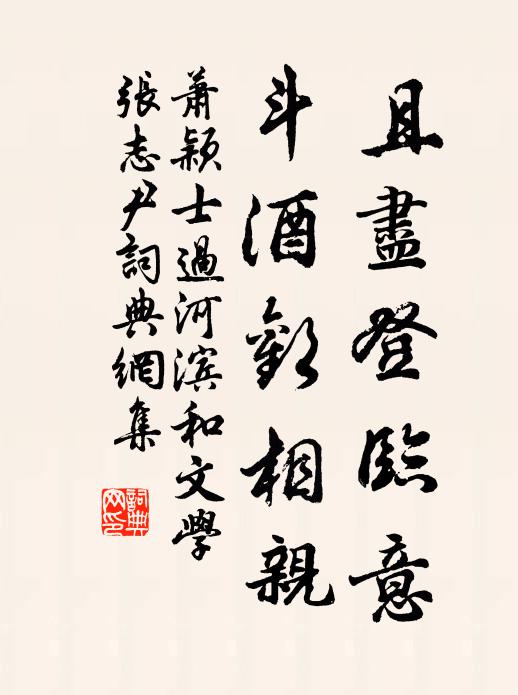 且盡登臨意
斗酒歡相親
蕭穎士過河滨和文學
張志尹詞典網集
詞典
网印